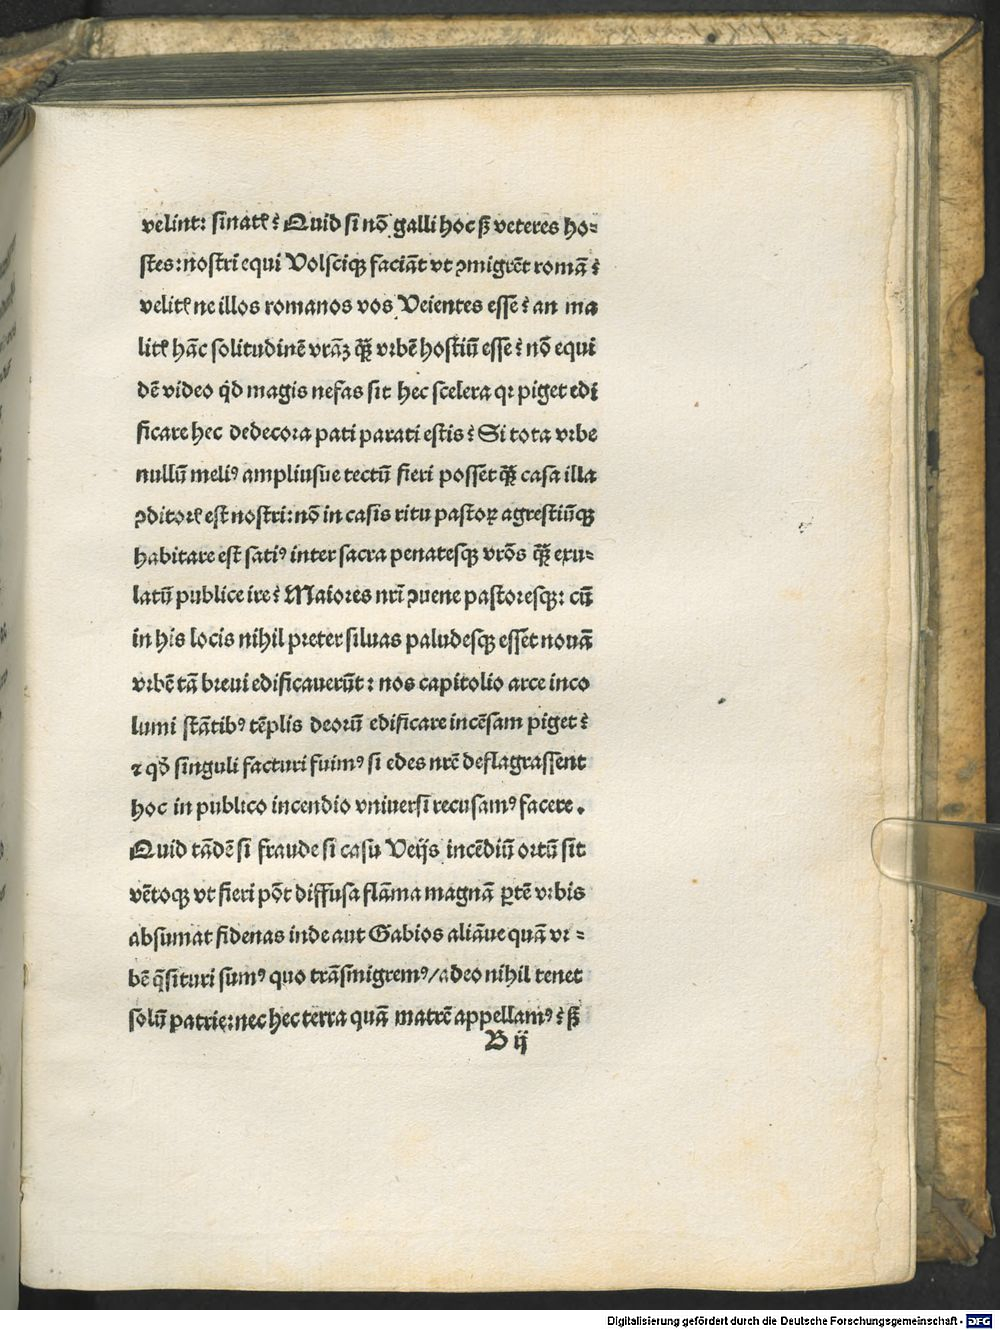 velint: sinatꝭ? Quid si nō galli hoc ſꝫ veteres ho⸗
stes: nostri equi Volsciqꝫ faciāt vt ꝯmigrēt romā?
velitꝭ ne illos romanos vos Veientes esse? an ma
litꝭ hāc solitudinē vrāꝫ qꝫ̄ vrbē hostiū esse? nō equi
dē video qͥd magis nefas sit hec scelera qꝛ piget edi
ficare hec dedecora pati parati estis? Si tota vrbe
nullū meliꝰ ampliusue tectū fieri possēt qꝫ̄ casa illa
ꝯditorꝭ est nostri: nō in casis ritu pastoꝝ agrestiūqꝫ
habitare est satiꝰ inter sacra penatesqꝫ vrōs qꝫ̄ exu⸗
latū publice ire? Maiores nrī ꝯuene pastoresqꝫ: cū
in his locis nihil preter siluas paludesqꝫ essēt nouā
vrbē tā breui edificauerūt: nos capitolio arce inco
lumi stātibꝰ tēplis deorū edificare incēsam piget?
⁊ qđ singuli facturi fuimꝰ si edes nrē deflagrassent
hoc in publico incendio vniuersi recusamꝰ facere.
Quid tādē si fraude si casu Veijs incēdiū ortū sit
vētoqꝫ vt fieri pōt diffusa flāma magnā ꝑtē vrbis
absumat fidenas inde aut Gabios aliāue quā vr⸗
bē q̄situri sumꝰ quo trāsmigremꝰ/adeo nihil tenet
solū patrie: nec hec terra quā matrē appellamꝰ? ſꝫ
B ij
Digitalisierung gefördert durch die Deutsche Forschungsgemeinschaft - DFG